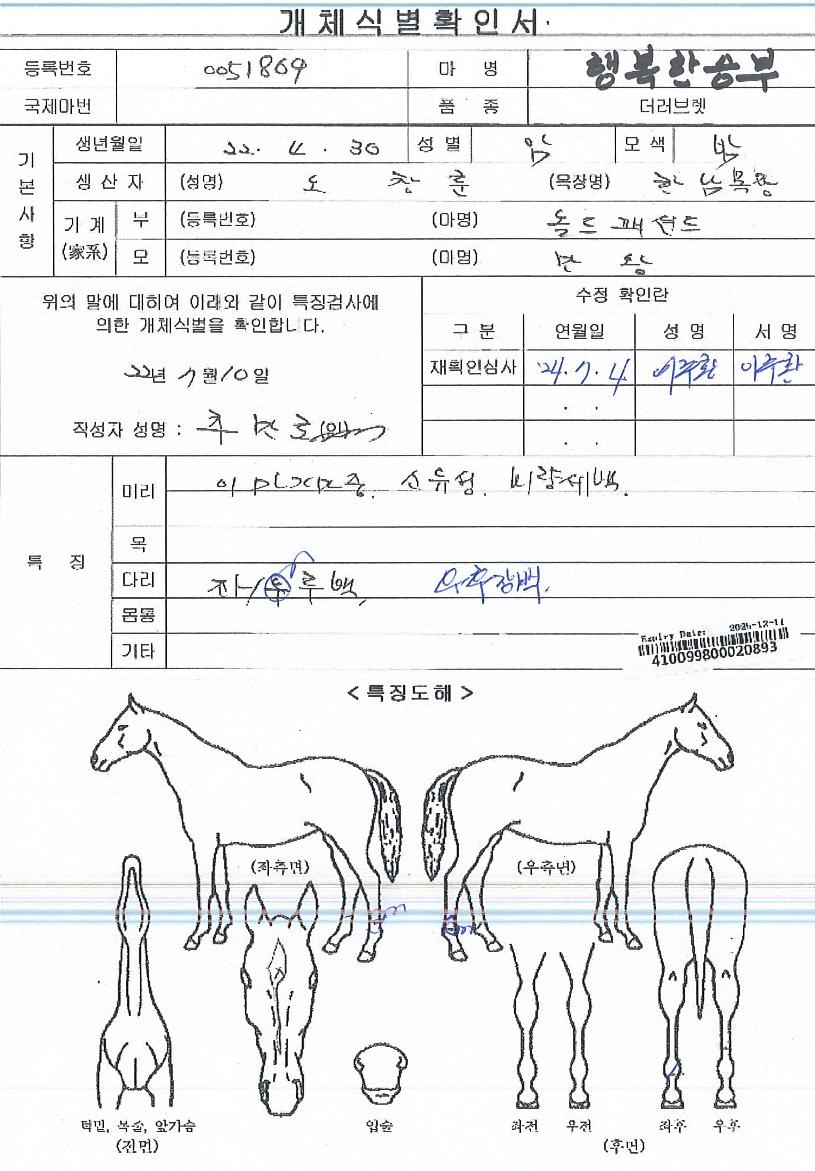 개체식별확인서
등록번호 0051869 마 명 행복한승부
국제마번 품 종 더러브렛
기본사항
생년월일 22. 4. 30 성별 암 모색 밤
생산자 (성명) 도 창 훈 (목장명) 한남목장
기계(家系) 부 (등록번호) (마명) 올드패션드
모 (등록번호) (마명)
위의 말에 대하여 아래와 같이 특징검사에
의한 개체식별을 확인합니다.
22년 7월 10일
작성자 성명 : (인)
수정 확인란
구 분 연월일 성 명 서 명
재확인심사 '24. 7. 4 이주환 이주환
. .
. .
특 징
머리 비량세백.
목
다리 우후장백.
몸통
기타
Expiry Date: 2025-12-11
410099800020893
< 특징도해 >
(좌측면) (우측면)
턱밑, 목줄, 앞가슴
(전면)
입술
좌전 우전 좌후 우후
(후면)